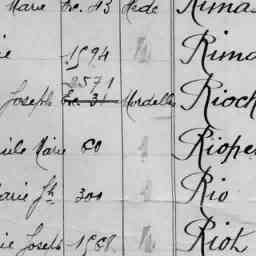 Marie Ex. 43 Hede Rimas
ie 1594 Rima
2571
Joseph Ex. 31 Mordelles Rioch
Marie 60 Riope
Marie Jh 300 Rio
ie Joseph Riot